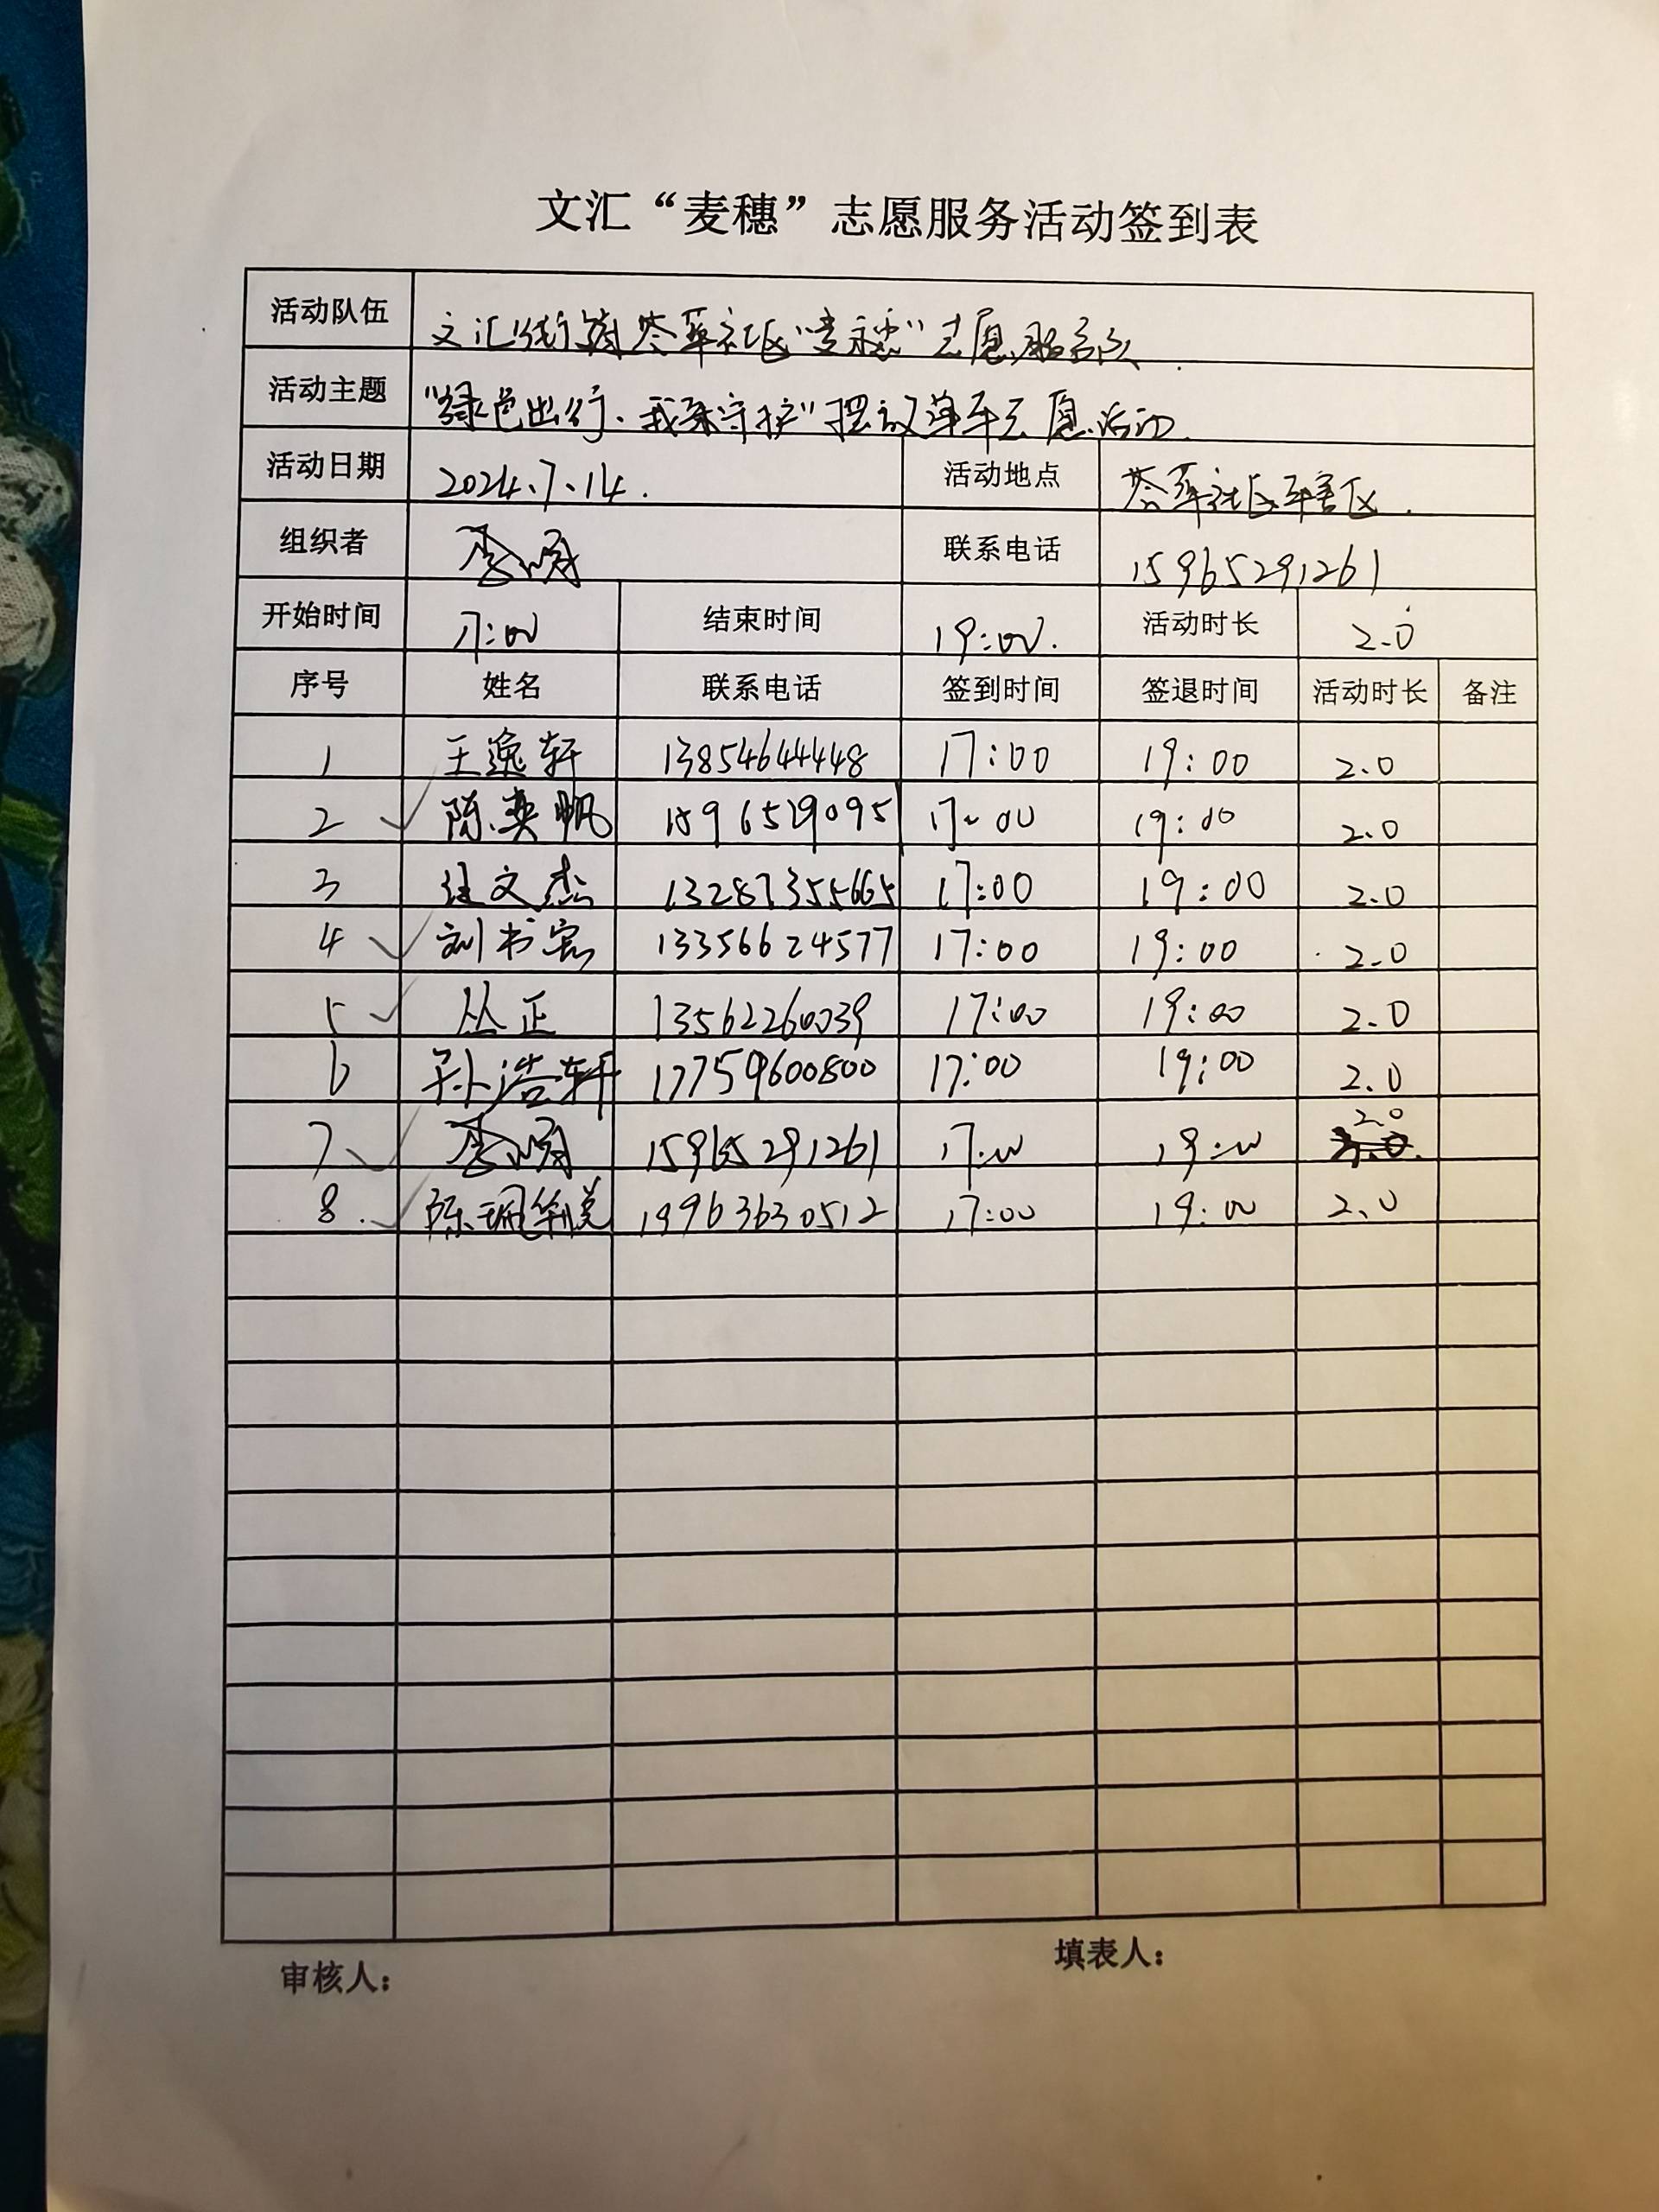 文汇“麦穗”志愿服务活动签到表
活动队伍 文汇街道荟萃社区“麦穗”志愿服务队.
活动主题 “绿色出行、我来守护”摆放单车志愿活动.
活动日期 2024.7.14. 活动地点 荟萃社区辖区.
组织者 李 联系电话 15965291261
开始时间 17:00 结束时间 19:00. 活动时长 2.0
序号 姓名 联系电话 签到时间 签退时间 活动时长 备注
1 王逸轩 13854644448 17:00 19:00 2.0
2 陈奕帆 15965290951 17:00 19:00 2.0
3 文杰 13287355665 17:00 19:00 2.0
4 刘书宏 13356624577 17:00 19:00 2.0
5 丛正 13562260039 17:00 19:00 2.0
6 孙浩轩 17759600800 17:00 19:00 2.0
7 李 15965291261 17:00 19:00 2.0
8. 陈珮 19963630512 17:00 19:00 2.0
审核人: 填表人: